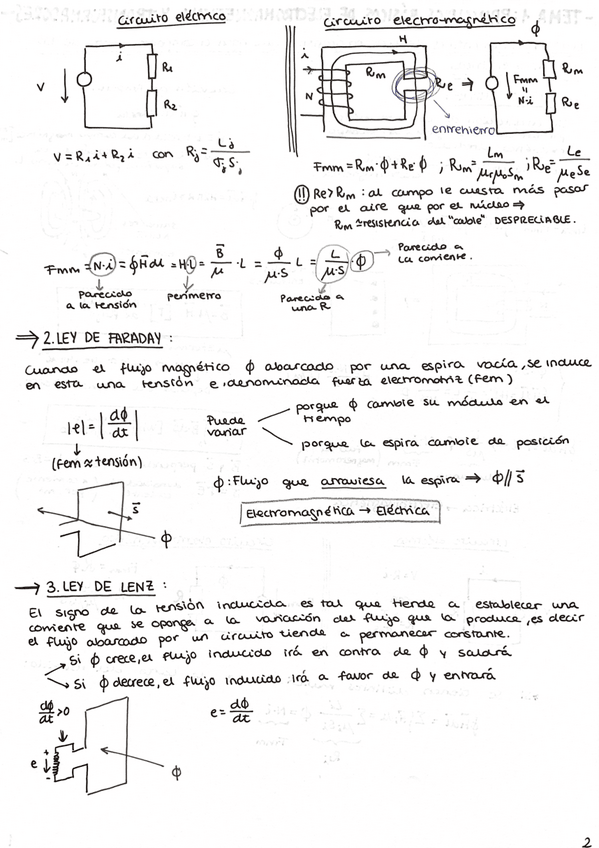 Circuito eléctrico
Circuito electro-magnético
i
V
R₁
R₂
V = R₁i + R₂i con Rj = Lj / σj Sj
H
i
N
Rm
Re ⇒
entrehierro
ϕ
Fmm = N·i
Rm
Re
Fmm = Rm·ϕ + Re·ϕ ; Rm = Lm / μrμ₀Sm ; Re = Le / μeSe
(!!) Re > Rm : al campo le cuesta más pasar
por el aire que por el núcleo ⇒
Rm ≃ resistencia del "cable" DESPRECIABLE.
Fmm = N·i = ∮H̄dl = H·l = B̄/μ · L = ϕ/μ·S L = L/μ·S · ϕ
Parecido a
la corriente.
Parecido
a la tensión
perímetro
Parecido a
una R
⇒ 2. LEY DE FARADAY :
Cuando el flujo magnético ϕ abarcado por una espira vacía, se induce
en esta una tensión e, denominada fuerza electromotriz (fem)
|e| = |dϕ/dt|
(fem ≈ tensión)
Puede
variar
porque ϕ cambie su módulo en el
tiempo
porque la espira cambie de posición
ϕ: Flujo que atraviesa la espira ⇒ ϕ // s̄
s̄
ϕ
Electromagnética → Eléctrica
→ 3. LEY DE LENZ :
El signo de la tensión inducida es tal que tiende a establecer una
corriente que se oponga a la variación del flujo que la produce, es decir
el flujo abarcado por un circuito tiende a permanecer constante.
Si ϕ crece, el flujo inducido irá en contra de ϕ y saldrá
Si ϕ decrece, el flujo inducido irá a favor de ϕ y entrará
dϕ/dt > 0
e = dϕ/dt
+
e
-
ϕ
2